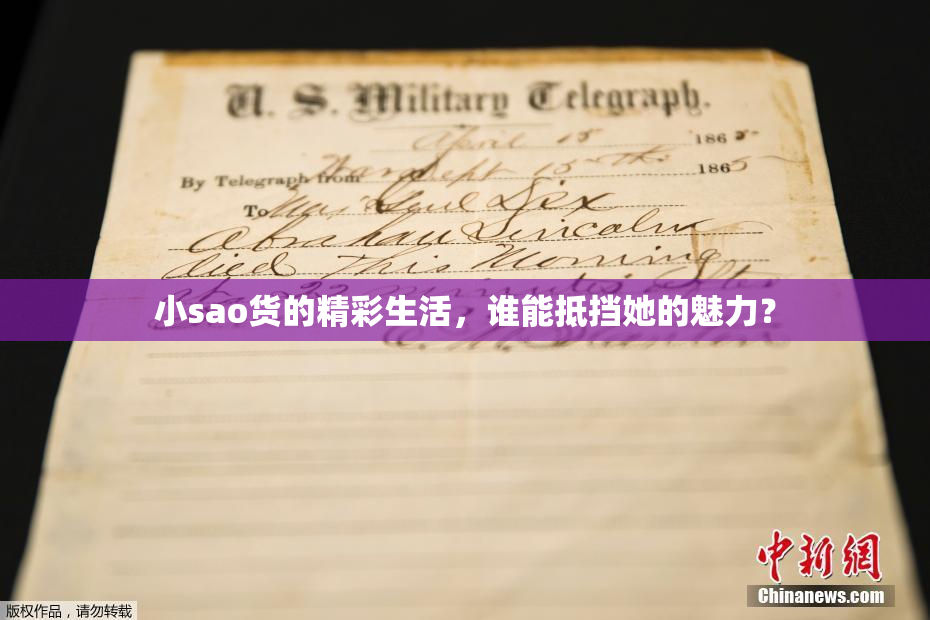 U. S. Military Telegraph.
April 15 1865
By Telegraph from War Dept 15th 1865
To Maj Genl Dix
Abraham Lincoln
died This Morning
at 22 minutes after
小sao货的精彩生活，谁能抵挡她的魅力？
E. M. Stanton
中新网
Chinanews.com
版权作品，请勿转载